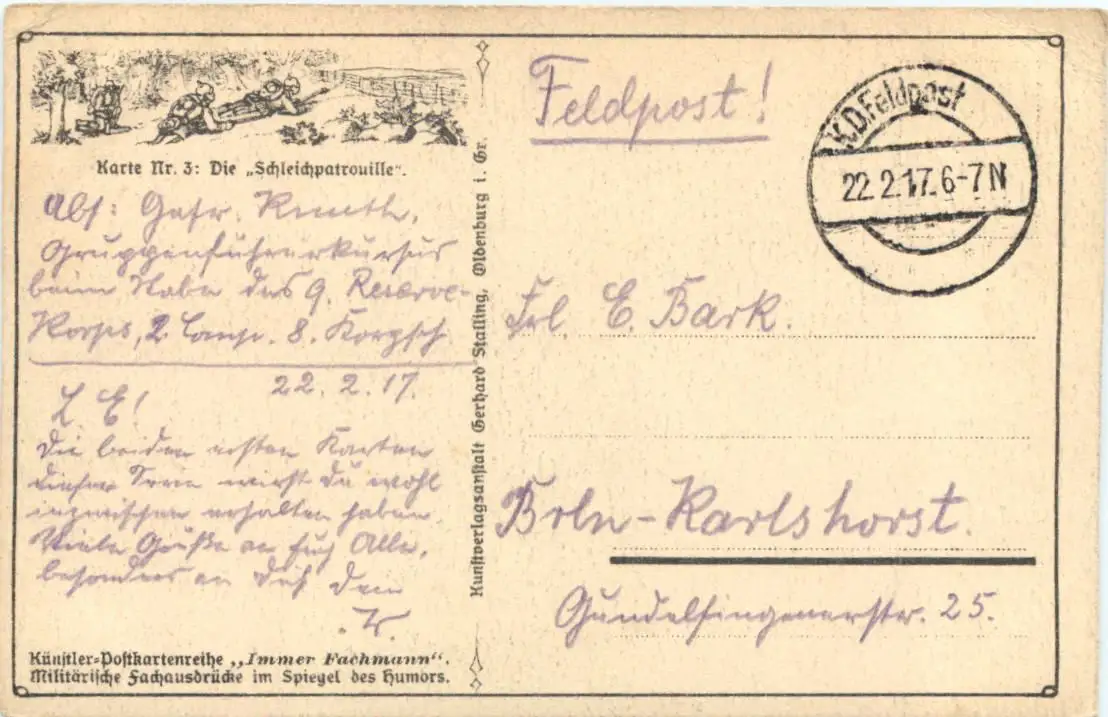 Karte Nr. 3: Die „Schleichpatrouille“.
Abs: Gefr. Kmuth,
Gruppenführerkursus
beim Stabe des 9. Reserve-
Korps, 2. Comp. 8. Korpsch
22. 2. 17.
L. E!
Die beiden ersten Karten
dieser Serie wirst Du wohl
inzwischen erhalten haben
Viele Grüße an Euch Alle,
besonders an Dich Dein
Künstler-Postkartenreihe „Immer Fachmann“.
Militärische Fachausdrücke im Spiegel des Humors.
Kunstverlagsanstalt Gerhard Stalling, Oldenburg i. Gr.
Feldpost!
K.D.Feldpost
22.2.17.6-7N
Frl E. Bark.
Brln-Karlshorst.
Gundelfingenerstr. 25.